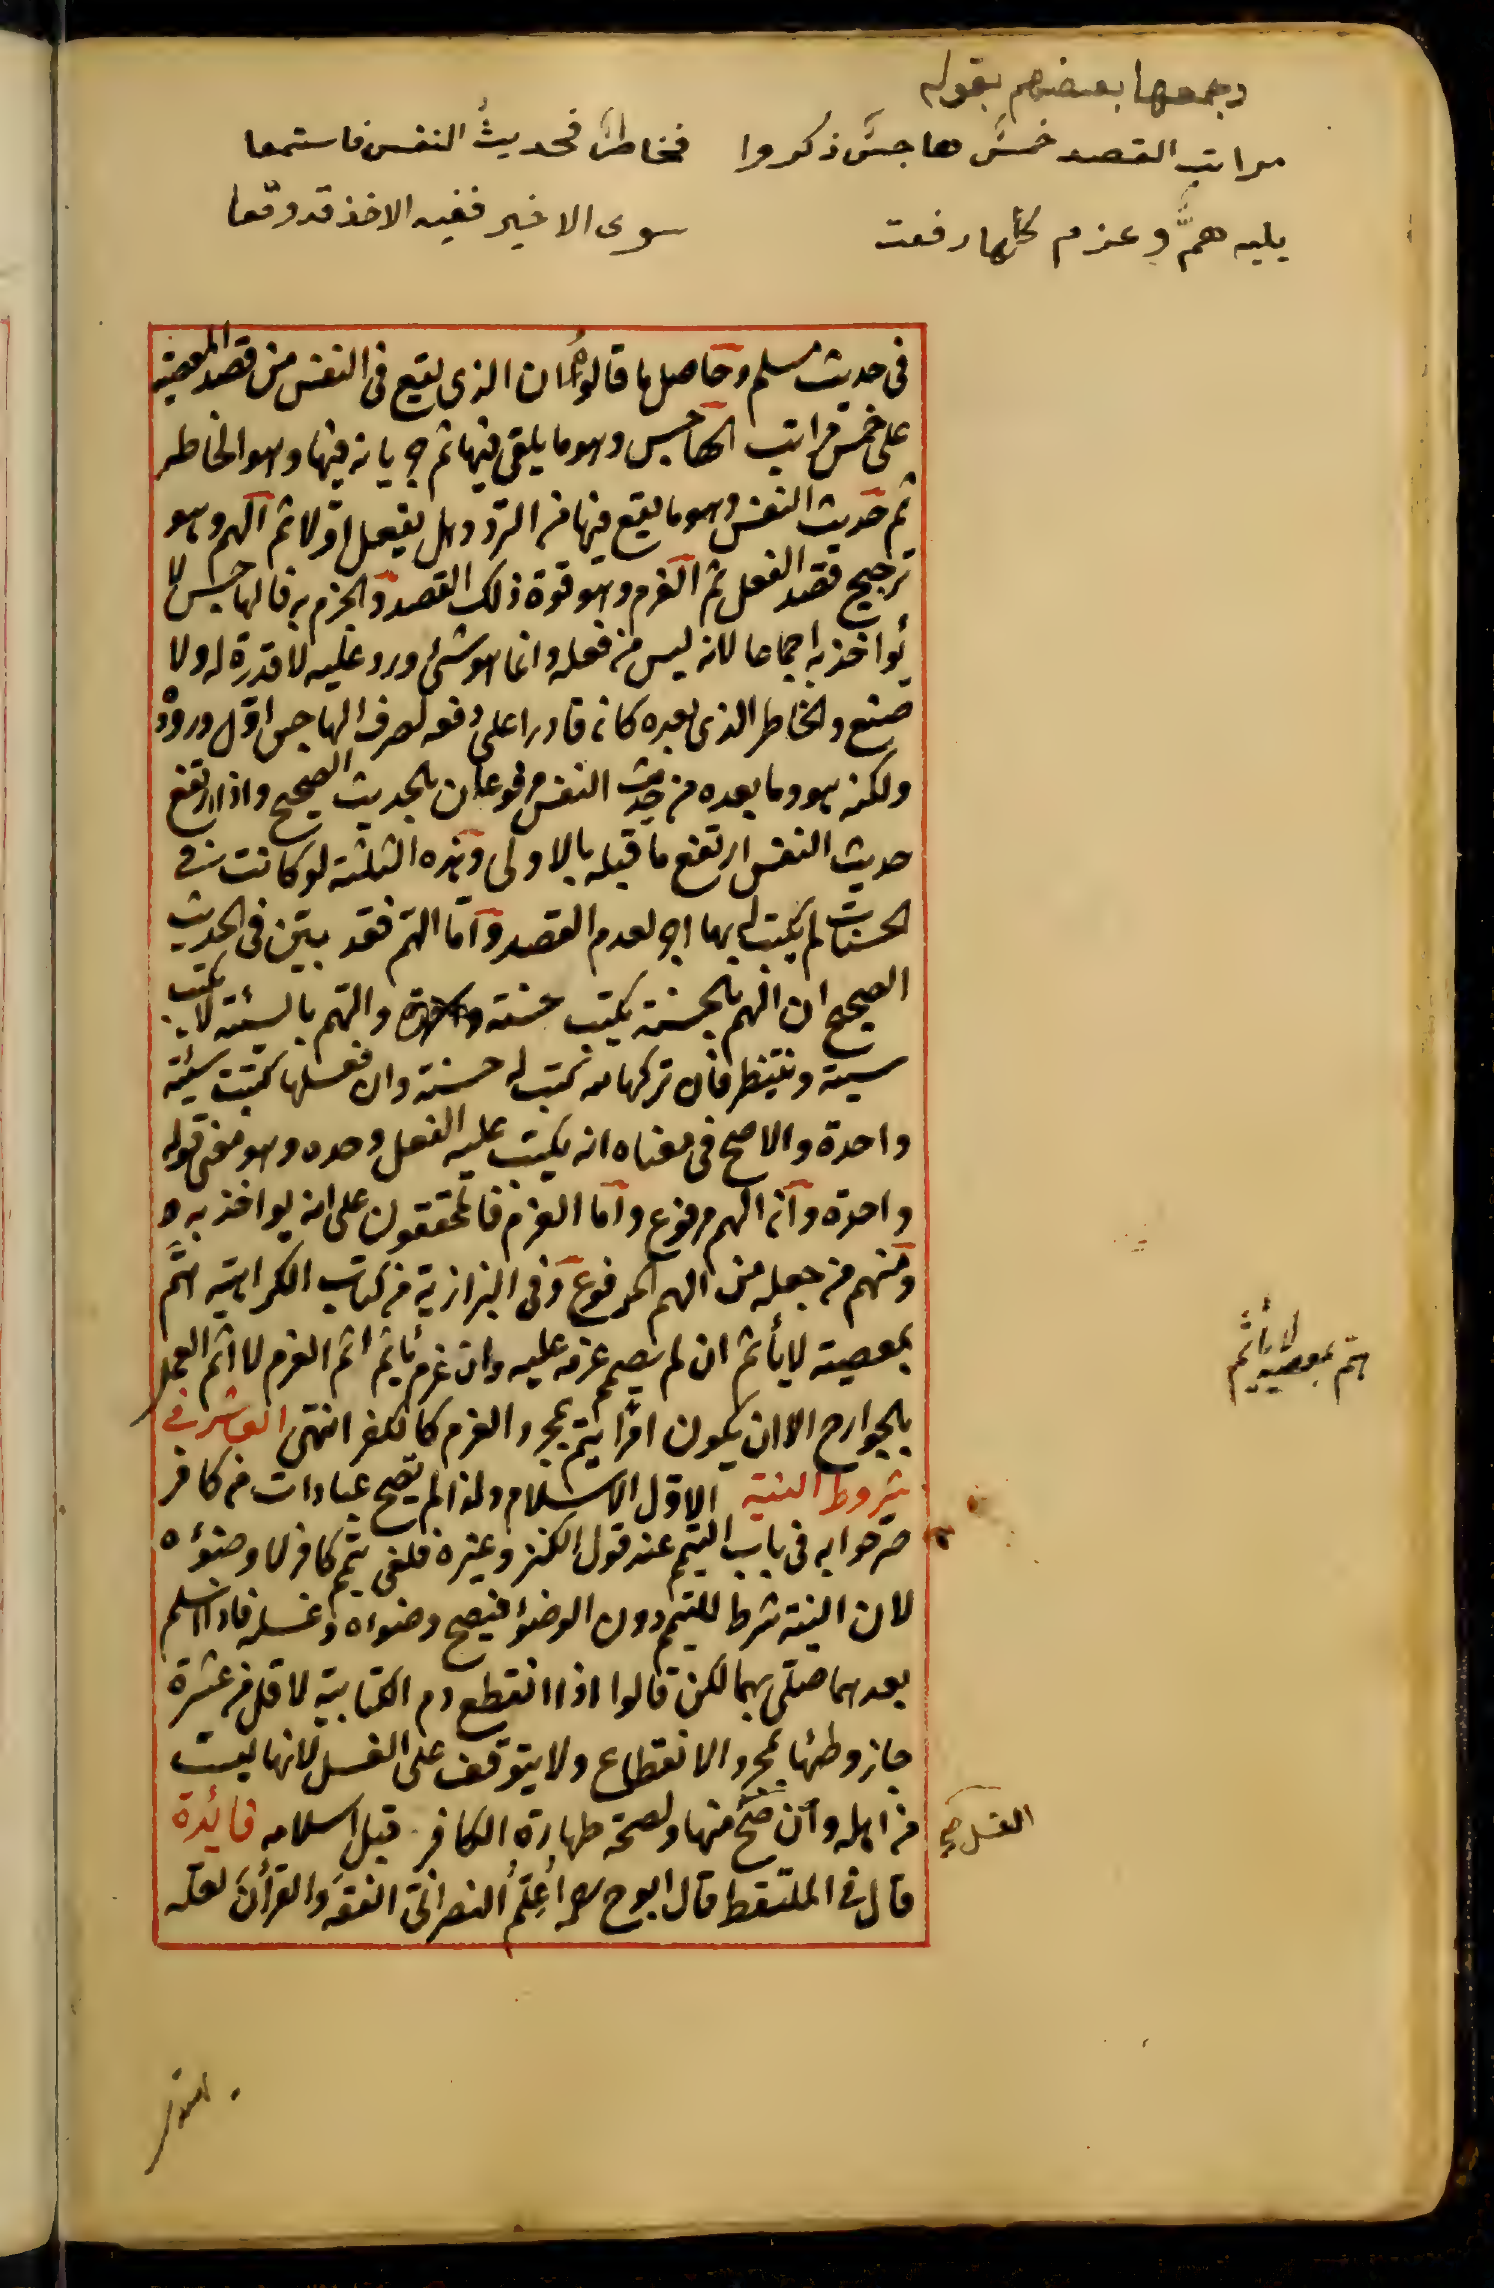 وجمعها بعضهم بقوله
مراتب القصد خمسٌ هاجسٌ ذكروا فخاطرٌ فحديثُ النفس فاستمعا
يليه همٌّ وعزم كلّها رفعت سوى الاخير ففيه الاخذ قد وقعا
فى حديث مسلم وحاصل ما قالوه ان الذى يقع فى النفس من قصد المعصية
على خمس مراتب الهاجس وهو ما يلقى فيها ثم جريانه فيها وهو الخاطر
ثم حديث النفس وهو ما يقع فيها من التردد هل يفعل اولا ثم الهم وهو
ترجيح قصد الفعل ثم العزم وهو قوة ذلك القصد والجزم به فالهاجس لا
يؤاخذ به اجماعا لانه ليس من فعله وانما هو شئ ورد عليه لا قدرة له ولا
صنع والخاطر الذى بعده كان قادرا على دفعه لصرف الهاجس اول وروده
ولكنه هو وما بعده من حديث النفس مرفوعان بالحديث الصحيح واذا ارتفع
حديث النفس ارتفع ما قبله بالاولى وهذه الثلثة لو كانت فى
الحسنات لم يكتب له بها اجر لعدم القصد واما الهم فقد بين فى الحديث
الصحيح ان الهم بالحسنة يكتب حسنة والهم بالسيئة لا يكتب
سيئة وينتظر فان تركها لله كتب له حسنة وان فعلها كتبت سيئة
واحدة والاصح فى معناه انه يكتب عليه الفعل وحده وهو معنى قوله
واحدة وان الهم مرفوع واما العزم فالمحققون على انه يواخذ به
ومنهم من جعله من الهم المرفوع وفى البزازية من كتاب الكراهية همّ
بمعصية لا يأثم ان لم يصمم عزمه عليه وان عزم يأثم اثم العزم لا اثم العمل
بالجوارح الا ان يكون امرا يتم بمجرد العزم كالكفر انتهى العاشر فى
شروط النية الاول الاسلام ولذا لم تصح عبادات من كافر
صرحوا به فى باب التيمم عند قول الكنز وغيره فلغى تيمم كافر لا وضوؤه
لان النية شرط للتيمم دون الوضوء فيصح وضوءه وغسله فاذا اسلم
بعدهما صلى بهما لكن قالوا اذا انقطع دم الكتابية لاقل من عشرة
جاز وطئها بمجرد الانقطاع ولا يتوقف على الغسل لانها ليست
من اهله وان صح منها لصحة طهارة الكافر قبل اسلامه فائدة
قال فى الملتقط قال ابوح أُعلّمُ النصرانى الفقهَ والقرأنَ لعله
همّ بمعصية لا يأثم
الغسل صح